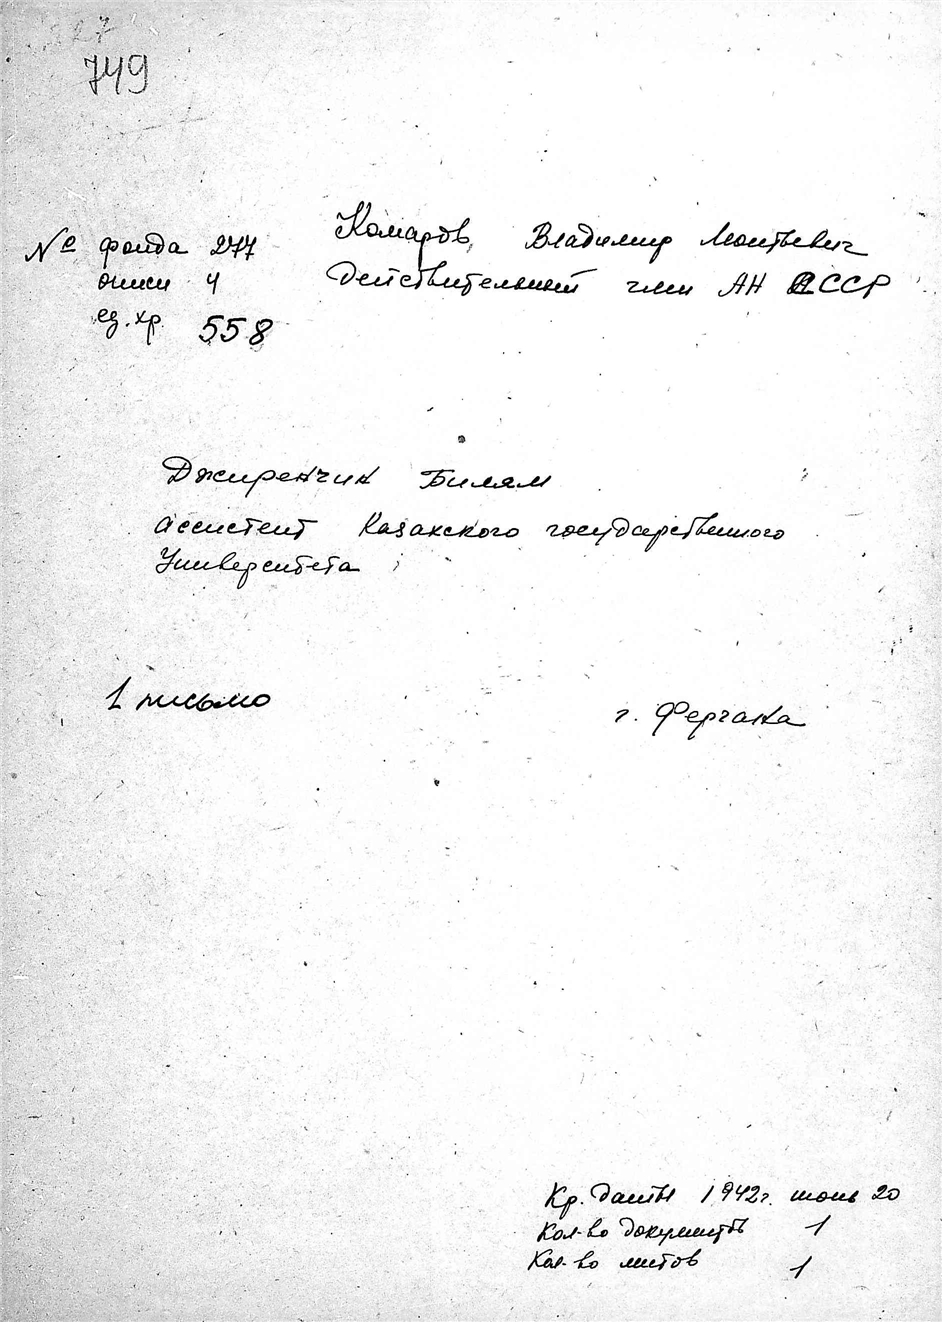 749
№ фонда 277
описи 4
ед. хр. 558
Комаров, Владимир Леонтьевич
Действительный член АН СССР
Джиренчин Билям
ассистент Казахского государственного
Университета
1 письмо
г. Фергана
Кр. даты 1942 г. июнь 20
Кол-во документов 1
Кол-во листов 1